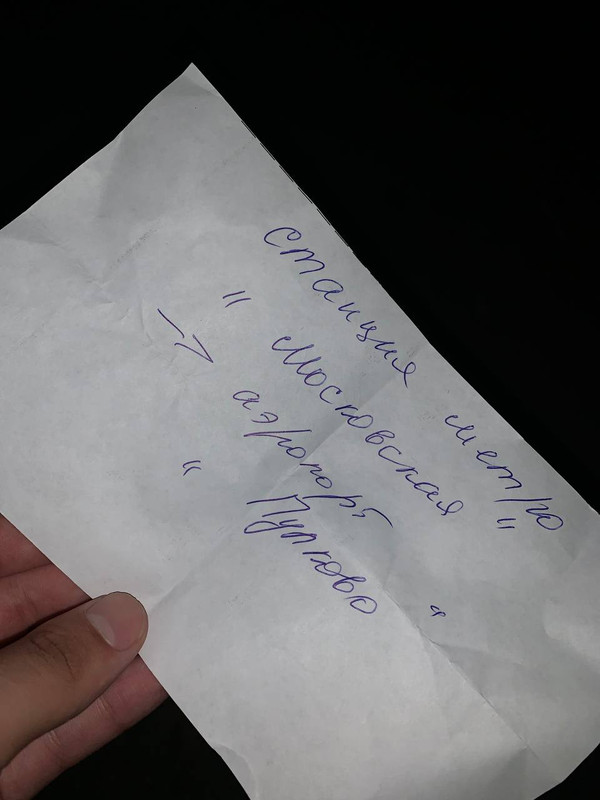 станция метро
"Московская"
→ аэропорт
"Пулково"